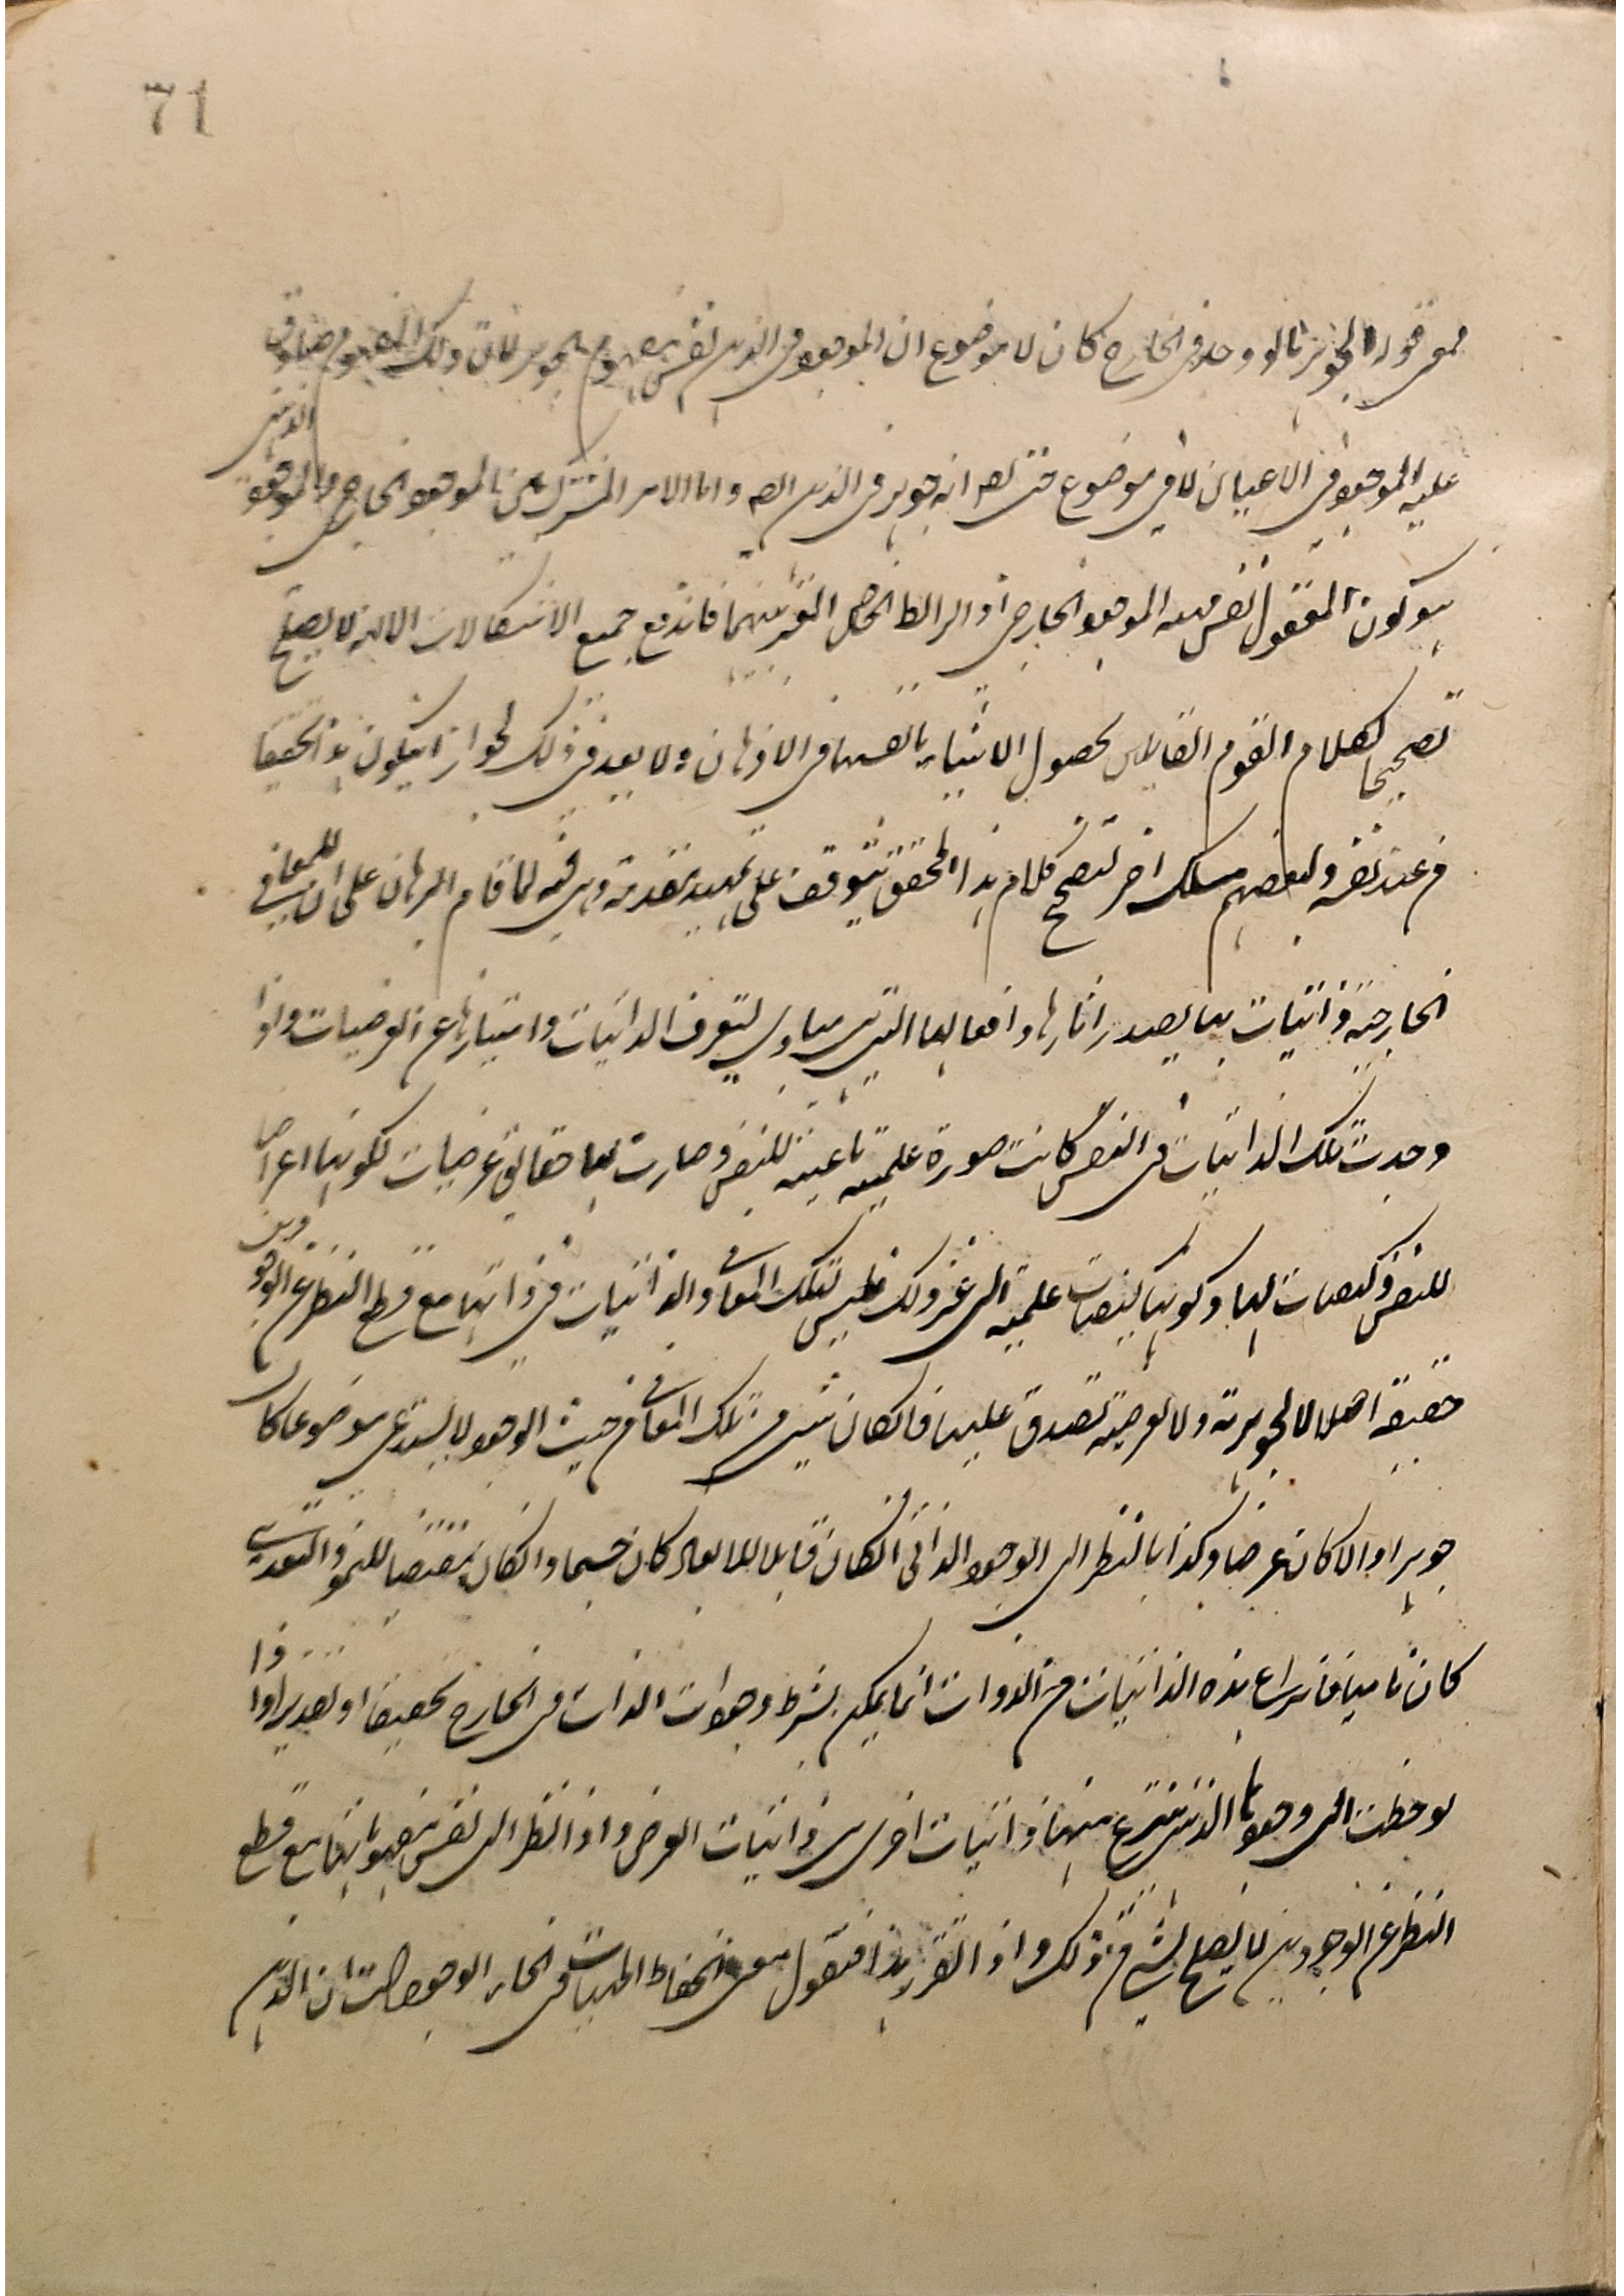 71
فمعنى قوله الجوهر ما لو وجد فى الخارج كان لا فى موضوع ان الموجود فى الذهن نفس مفهوم الجوهر لان ذلك المفهوم صادق
عليه الموجود فى الاعيان لا فى موضوع حتى انه جوهر فى الذهن واما الامر المشترك بين الموجود الخارجى والموجود الذهنى
هو كون المعقول نفس مهية الموجود الخارجى فاندفع جميع الاشكالات الا انه لا يصلح
تصحيحا لكلام القوم القائلين بحصول الاشياء بانفسها فى الاذهان ولا بعد فى ذلك لجواز ان يكون هذا تحقيقا
من عند نفسه ولبعضهم مسلك اخر لتصحيح كلام هذا المحقق يتوقف على تمهيد مقدمة وهى انه لما قام البرهان على ان للمعانى
الخارجية ذاتيات بها يصدر اثارها وافعالها التى هى مبادى لتعرف الذاتيات وامتيازها عن العرضيات واذا
وجدت تلك الذاتيات فى النفس كانت صورة علمية ناعتية للنفس وصارت لها حقائق عرضيات لكونها اعراضا
للنفس وكيفيات لها وكونها كيفيات علمية الى غير ذلك فليس لتلك المعانى والذاتيات فى ذاتها مع قطع النظر عن الوجودين
حقيقة اصلا لا الجوهرية ولا العرضية تصدق عليها فان كان شىء من تلك المعانى من حيث الوجود لا يستدعى موضوعا كان
جوهرا والا كان عرضا وكذا بالنظر الى الوجود الذاتى ان كان قابلا للابعاد كان جسما وان كان مقتضيا للنمو والتغذية
كان ناميا فانتزاع هذه الذاتيات من الذوات انما يمكن بشرط وجود الذات فى الخارج تحقيقا او تقديرا واذا
لوحظت الى وجودها الذهنى ينتزع منها ذاتيات اخرى هى ذاتيات العرض واذا نظر الى نفس مفهوماتها مع قطع
النظر عن الوجودين لا يصلح لشىء من ذلك واذا تقرر هذا فنقول معنى انحفاظ المهيات فى انحاء الوجودات ان الذهن